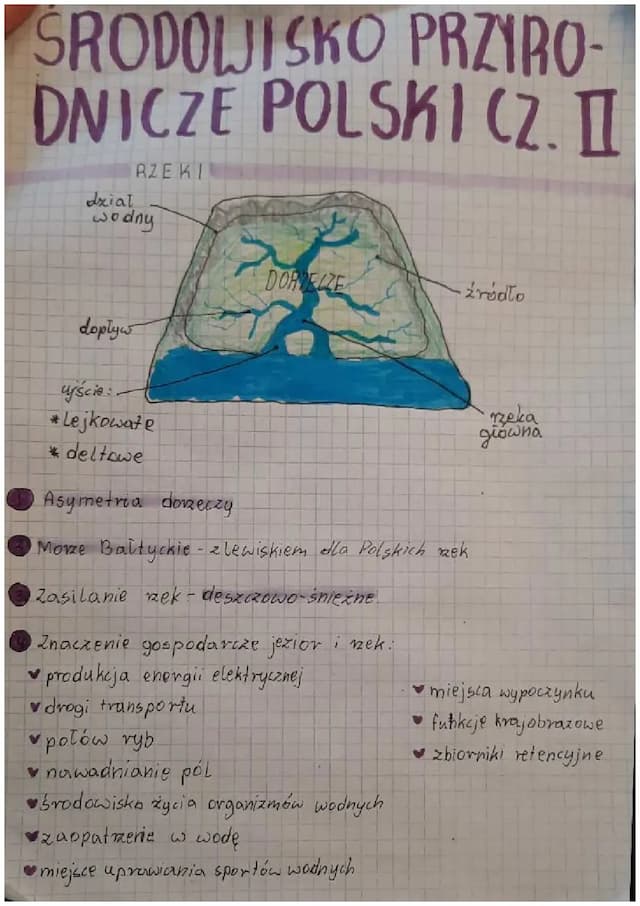 ŚRODOWISKO PRZYRO-
DNICZE POLSKI CZ. II
RZEKI
dział
wodny
DORZECZE
źródło
dopływ
ujście:
*lejkowate
*deltowe
rzeka
główna
1 Asymetria dorzeczy
2 Morze Bałtyckie - zlewiskiem dla Polskich rzek
3 Zasilanie rzek - deszczowo-śnieżne.
4 Znaczenie gospodarcze jezior i rzek:
produkcja energii elektrycznej
drogi transportu
połów ryb
nawadnianie pól
środowisko życia organizmów wodnych
zaopatrzenie w wodę
miejsce uprawiania sportów wodnych
miejsca wypoczynku
funkcje krajobrazowe
zbiorniki retencyjne